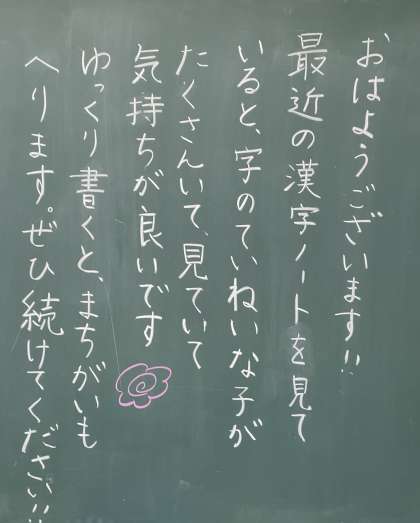 おはようございます!!
最近の漢字ノートを見て
いると、字のていねいな子が
たくさんいて、見ていて
気持ちが良いです
ゆっくり書くと、まちがいも
へります。ぜひ続けてください!!